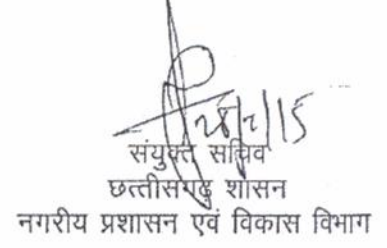 संयुक्त सचिव
छत्तीसगढ़ शासन
नगरीय प्रशासन एवं विकास विभाग